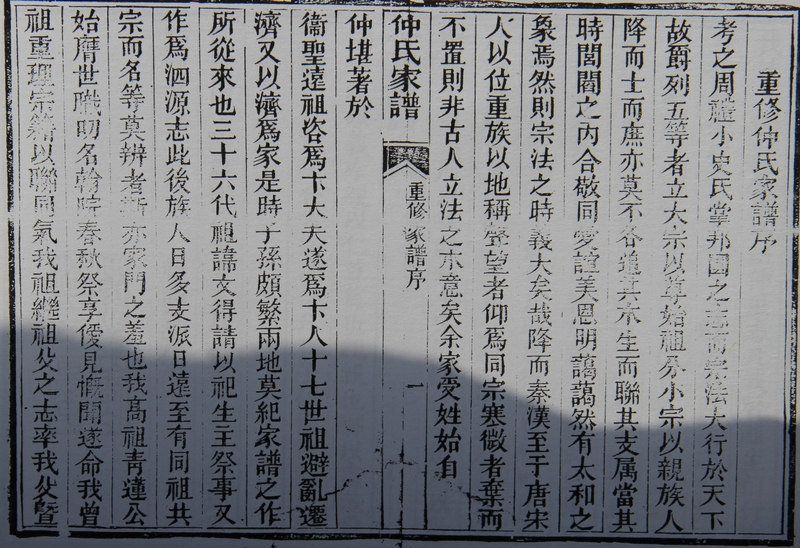 重修仲氏家譜序
考之周禮小史氏掌邦國之志而宗法大行於天下
故爵列五等者立大宗以尊始祖分小宗以親族人
降而士而庶亦莫不各追其本生而聯其支属當其
時閭閻之内合敬同愛誼美恩明藹藹然有太和之
象焉然則宗法之時義大矣哉降而秦漢至于唐宋
人以位重族以地稱聲望者仰為同宗寒微者棄而
不置則非古人立法之本意矣余家受姓始自
仲氏家譜
重修家譜序
一
仲堪著於
衛聖遠祖諮為卞大夫遂為卞人十七世祖避亂遷
濟又以濟為家是時子孫頗繁兩地莫紀家譜之作
所從來也三十六代祖諱文得請以祀生主祭事又
作為泗源志此後族人日多支派日遠至有同祖共
宗而名等莫辨者斯亦家門之羞也我高祖青蓮公
始膺世職叨名翰院春秋祭享僾見愾聞遂命我曾
祖重理宗籍以聯同氣我祖繼祖父之志率我父暨